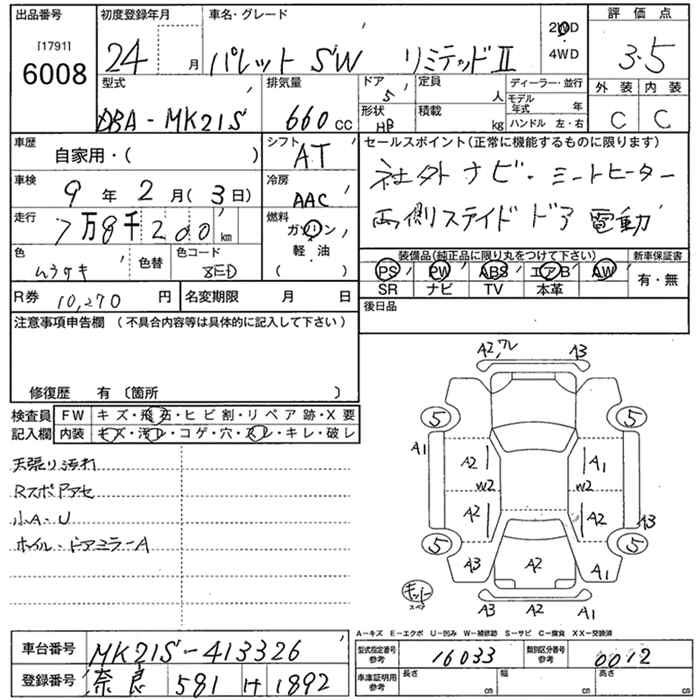 出品番号
[1791]
6008
初度登録年月
24 月
車名・グレード
パレット SW リミテッドⅡ
2WD
4WD
評価点
3.5
外装 内装
C C
型式
DBA-MK21S
排気量
660 cc
ドア
5
形状
HB
定員
人
積載
kg
ディーラー・並行
モデル年式 年
ハンドル 左・右
車歴
自家用・( )
シフト
AT
車検
9 年 2 月 ( 3 日)
冷房
AAC
走行
7万8千200 km
燃料
ガソリン
軽油
( )
色
ムラサキ
色替
色コード
ZED
R券 10,270 円
名変期限 月 日
セールスポイント(正常に機能するものに限ります)
社外ナビ・シートヒーター
両側スライドドア 電動
装備品(純正品に限り丸をつけて下さい)
PS PW ABS エアB AW
SR ナビ TV 本革
新車保証書
有・無
後日品
注意事項申告欄 (不具合内容等は具体的に記入して下さい)
修復歴 有 〔箇所 〕
検査員記入欄
FW キズ・飛石・ヒビ割・リペア跡・X要
内装 キズ・汚レ・コゲ・穴・スレ・キレ・破レ
天張り汚れ
RスポアセA
小A・U
ホイル・ドアミラーA
A2,ワレ A3
5 5
A2 A1
W2 W2
A2 A2 A3
5 5
A3 A2 A1
キット
スペア
A3 A2 A1
A-キズ E-エクボ U-凹み W-補修跡 S-サビ C-腐食 XX-交換済
車台番号 MK21S-413326
登録番号 奈良 581 け 1892
型式指定番号 参考 16033
類別区分番号 参考 0012
車庫証明用 参考
長さ cm
幅 cm
高さ cm